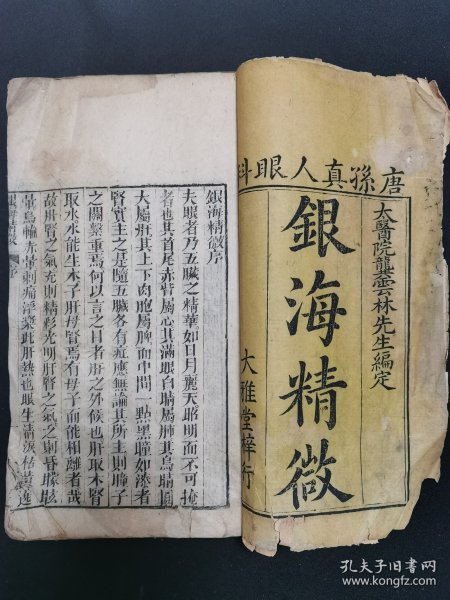 唐孫真人眼科
太醫院龔雲林先生編定
銀海精微
大雅堂梓行
銀海精微序
夫眼者乃五臟之精華如日月麗天昭明而不可掩
者也其首尾赤眥屬心其滿眼白睛屬肺其烏睛圓
大屬肝其上下肉胞屬脾而中間一點黑瞳如漆者
腎實主之是隨五臟各有症應無論其所主則瞳子
之關係重焉何以言之目者肝之外候也肝取木腎
取水水能生木子肝母腎焉有母子而能相離者哉
故肝腎之氣充則精彩光明肝腎之氣乏則昏朦眩
暈烏輪赤暈刺痛浮漿此肝熱也眼生清淚枯黃遶
銀海精微 序
孔夫子旧书网
www.kongfz.com